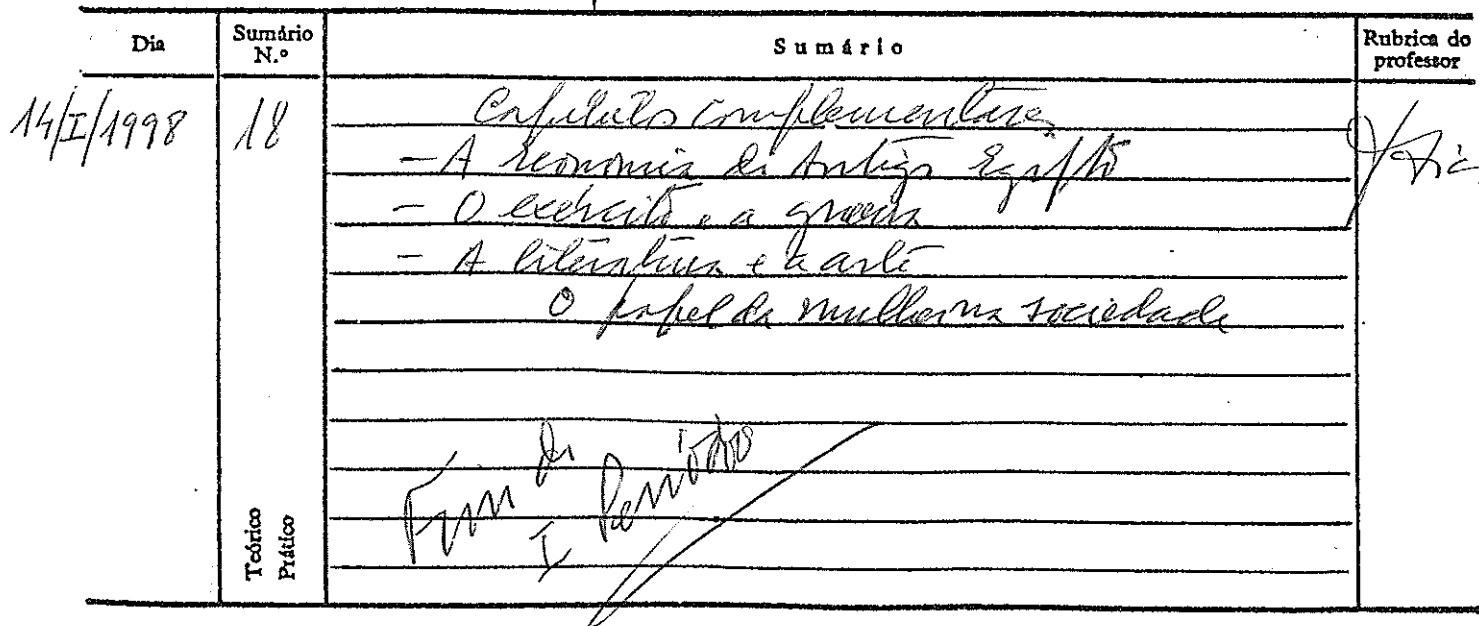 Dia
Sumário N.º
Sumário
Rubrica do professor
14/I/1998
18
Capítulos complementares
- A economia do Antigo Egipto
- O exército e a guerra
- A literatura e a arte
O papel da mulher na sociedade
Fim do
I Período
Teórico
Prático